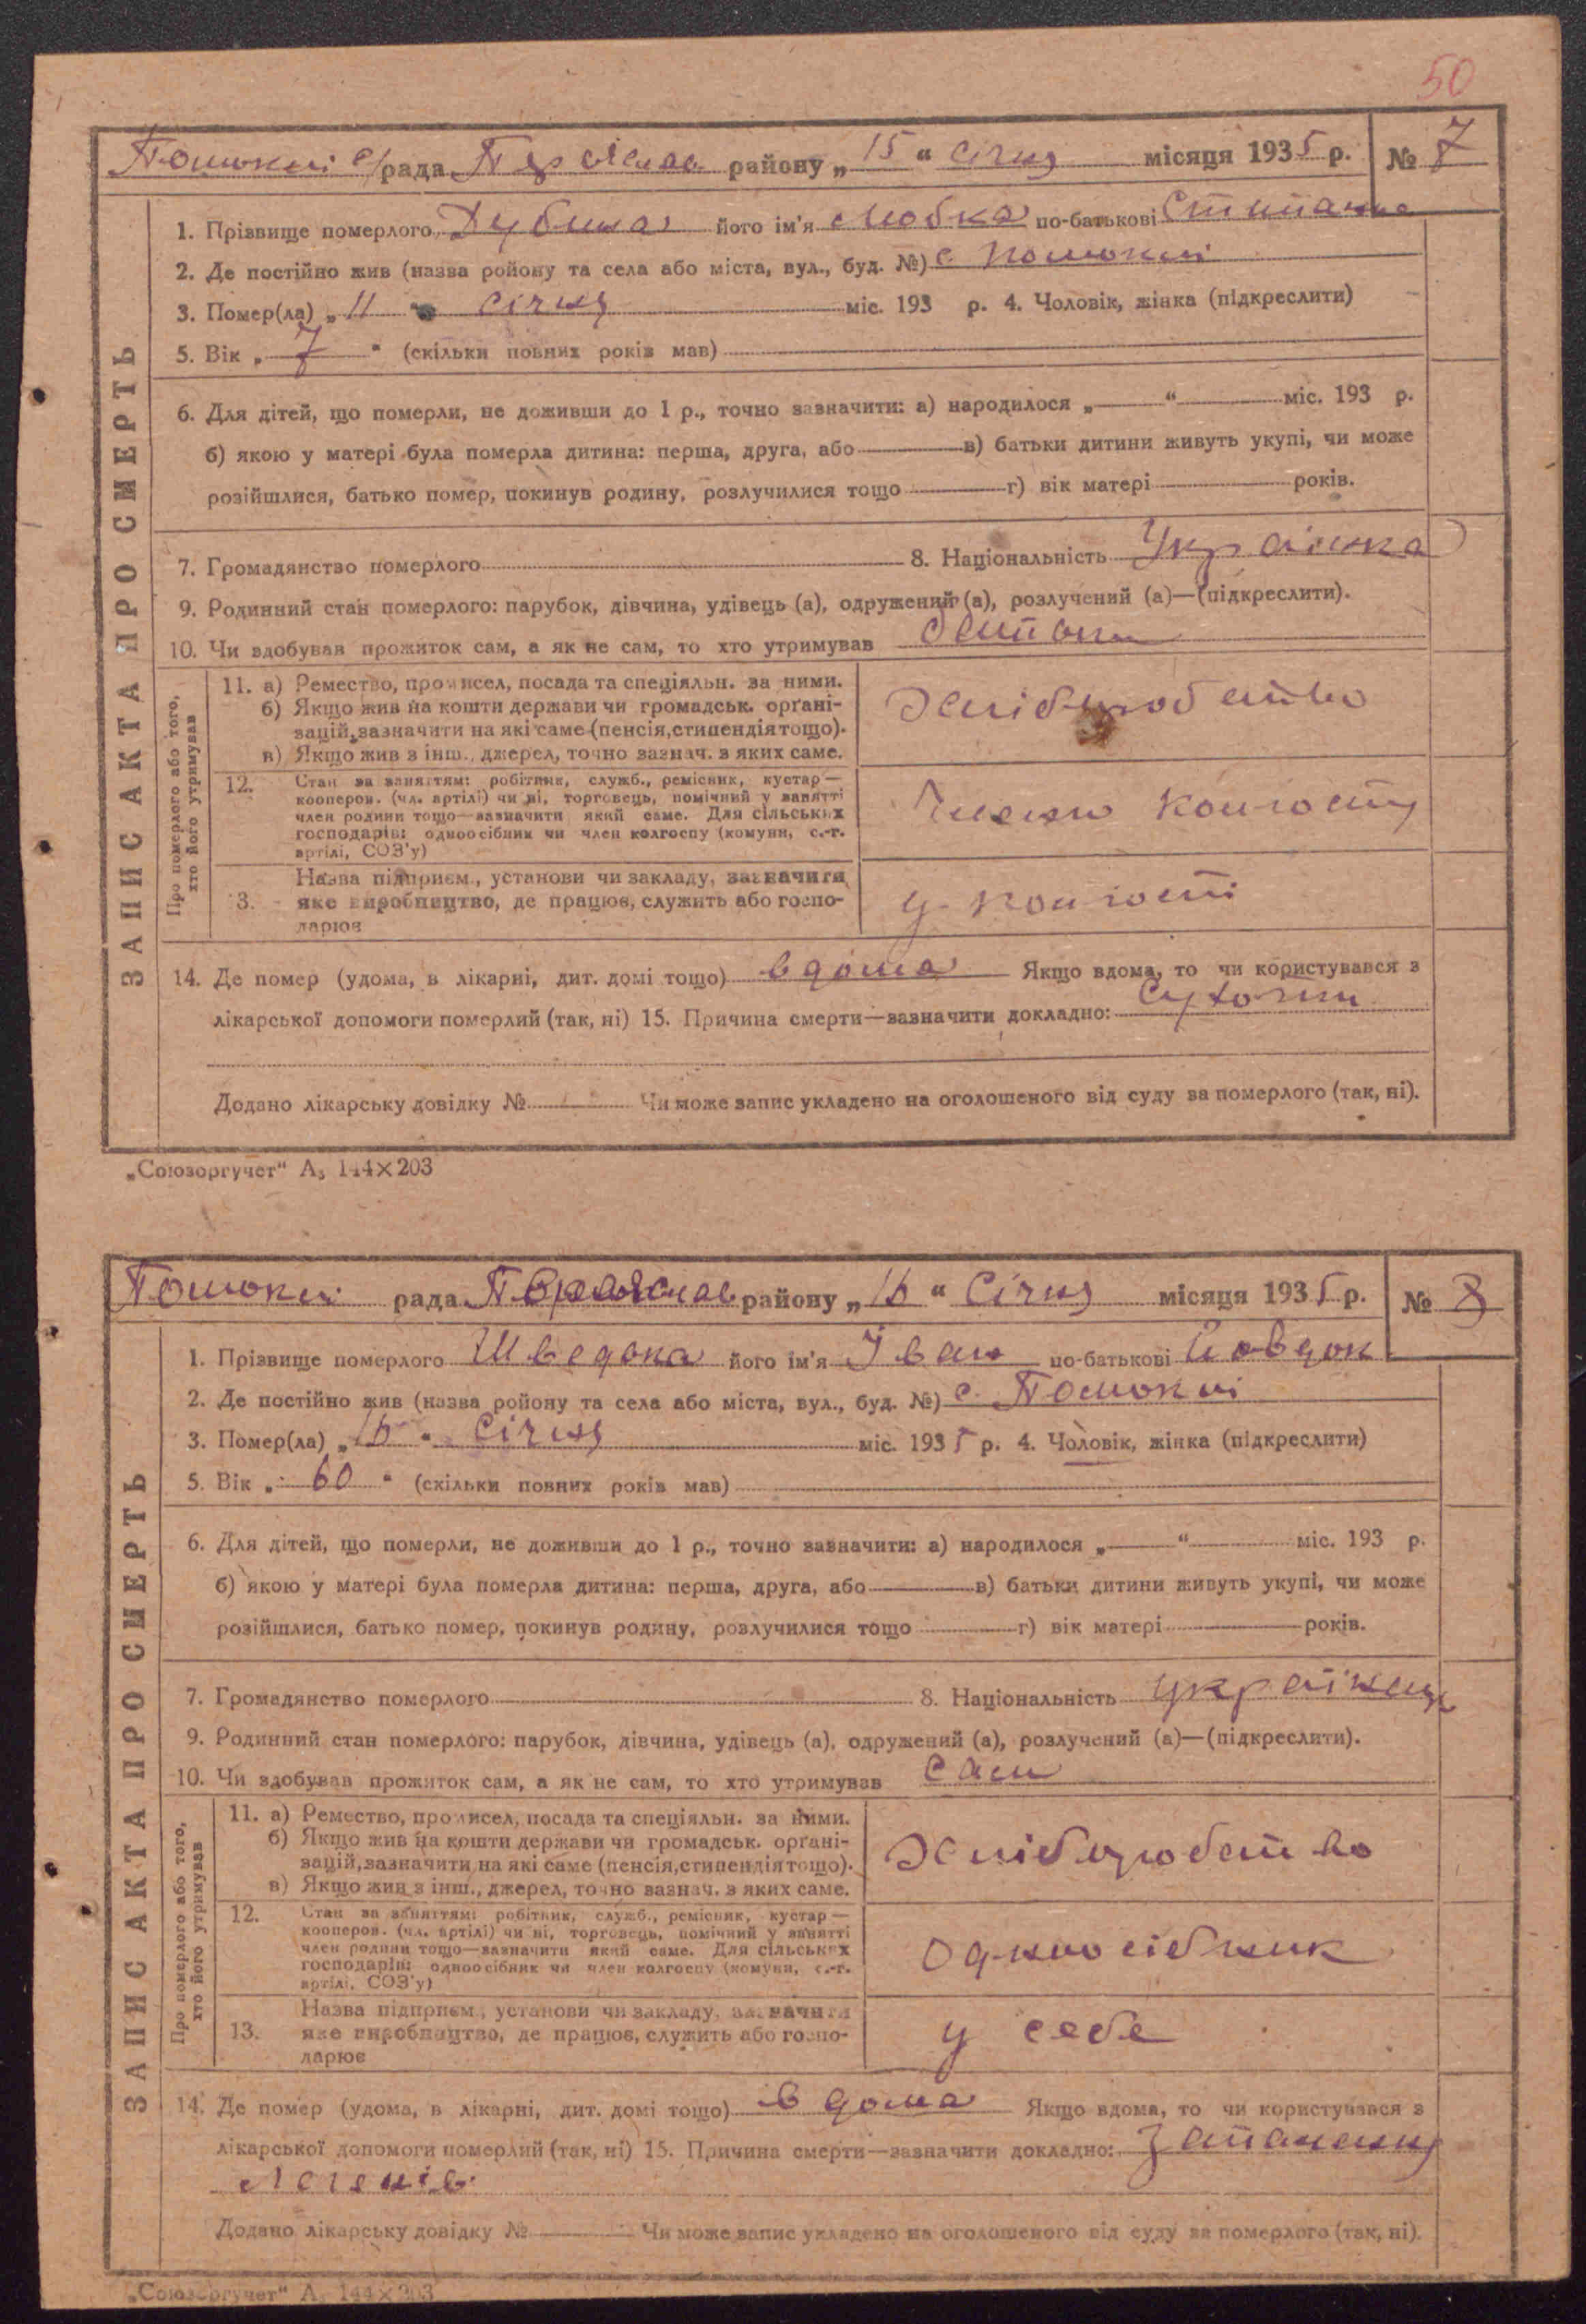 50
Помокли с/рада Переяслав району „15“ січня місяця 1935 р. № 7
1. Прізвище померлого Дубина його ім'я Любка по-батькові
2. Де постійно жив (назва ройону та села або міста, вул., буд. №) с Помокли
3. Помер(ла) „11“ січня міс. 193 р. 4. Чоловік, жінка (підкреслити)
5. Вік „7“ (скільки повних років мав)
6. Для дітей, що померли, не доживши до 1 р., точно зазначити: а) народилося „ “ міс. 193 р.
б) якою у матері була померла дитина: перша, друга, або в) батьки дитини живуть укупі, чи може
розійшлися, батько помер, покинув родину, розлучилися тощо г) вік матері років.
7. Громадянство померлого 8. Національність Українка
9. Родинний стан померлого: парубок, дівчина, удівець (а), одружений (а), розлучений (а)—(підкреслити).
10. Чи здобував прожиток сам, а як не сам, то хто утримував
ЗАПИС АКТА ПРО СМЕРТЬ
Про померлого або того, хто його утримував
11. а) Ремество, промисел, посада та спеціяльн. за ними.
б) Якщо жив на кошти держави чи громадськ. орґані-
зацій, зазначити на які саме (пенсія, стипендія тощо).
в) Якщо жив з інш., джерел, точно зазнач. з яких саме.
Хліборобство
12. Стан за заняттям: робітник, служб., ремісник, кустар—
кооперов. (чл. артілі) чи ні, торговець, помічний у занятті
член родини тощо—зазначити який саме. Для сільських
господарів: одноосібник чи член колгоспу (комуни, с.-г.
артілі, СОЗ'у)
Член колгоспу
13. Назва підприєм., установи чи закладу, зазначити
яке виробництво, де працює, служить або госпо-
дарює
у колгоспі
14. Де помер (удома, в лікарні, дит. домі тощо) вдома Якщо вдома, то чи користувався з
лікарської допомоги померлий (так, ні) 15. Причина смерти—зазначити докладно: Сухоти
Додано лікарську довідку № Чи може запис укладено на оголошеного від суду за померлого (так, ні).
„Союзоргучет“ А₅ 144×203
Помокли рада Переяслав району „16“ Січня місяця 1935 р. № 8
1. Прізвище померлого його ім'я Іван по-батькові
2. Де постійно жив (назва ройону та села або міста, вул., буд. №) с. Помокли
3. Помер(ла) „16“ Січня міс. 1935 р. 4. Чоловік, жінка (підкреслити)
5. Вік „60“ (скільки повних років мав)
6. Для дітей, що померли, не доживши до 1 р., точно зазначити: а) народилося „ “ міс. 193 р.
б) якою у матері була померла дитина: перша, друга, або в) батьки дитини живуть укупі, чи може
розійшлися, батько помер, покинув родину, розлучилися тощо г) вік матері років.
7. Громадянство померлого 8. Національність українець
9. Родинний стан померлого: парубок, дівчина, удівець (а), одружений (а), розлучений (а)—(підкреслити).
10. Чи здобував прожиток сам, а як не сам, то хто утримував Сам
ЗАПИС АКТА ПРО СМЕРТЬ
Про померлого або того, хто його утримував
11. а) Ремество, промисел, посада та спеціяльн. за ними.
б) Якщо жив на кошти держави чи громадськ. орґані-
зацій, зазначити на які саме (пенсія, стипендія тощо).
в) Якщо жив з інш., джерел, точно зазнач. з яких саме.
Хліборобство
12. Стан за заняттям: робітник, служб., ремісник, кустар—
кооперов. (чл. артілі) чи ні, торговець, помічний у занятті
член родини тощо—зазначити який саме. Для сільських
господарів: одноосібник чи член колгоспу (комуни, с.-г.
артілі, СОЗ'у)
Одноосібник
13. Назва підприєм., установи чи закладу, зазначити
яке виробництво, де працює, служить або госпо-
дарює
у себе
14. Де помер (удома, в лікарні, дит. домі тощо) в дома Якщо вдома, то чи користувався з
лікарської допомоги померлий (так, ні) 15. Причина смерти—зазначити докладно: Запалення
Легенів
Додано лікарську довідку № Чи може запис укладено на оголошеного від суду за померлого (так, ні).
„Союзоргучет“ А₅ 144×203